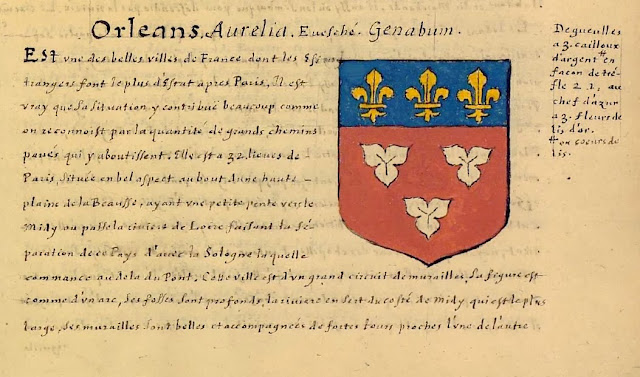 Orleans. Aurelia. Evesché. Genabum.
Est vne des belles villes de France dont les Es-
trangers font le plus d'Estat apres Paris. Il est
vray que la situation y contribue beaucoup comme
on reconnoist par la quantité de grands chemins
paués qui y aboutissent. Elle est a 32 lieues de
Paris, située en bel aspect au bout d'une haute
plaine de la Beausse, ayant vne petite pente vers le
Midy ou passe la riuiere de Loire faisant la sé-
paration de ce Pays d'auec la Sologne laquelle
commance au dela du Pont. Cette ville est d'vn grand circuit de murailles, sa figure est
comme d'vn arc, ses fossés sont profonds, la riuiere en sert du costé de midy, qui est le plus
large, ses murailles sont belles et accompagnées de fortes tours proches l'vne de l'autre
De gueulles
a 3. cailloux
d'argent # en
facon de tré-
fle 2. 1, au
chef d'azur
a 3. fleurs de
lis d'or.
# ou coeurs de
lis.